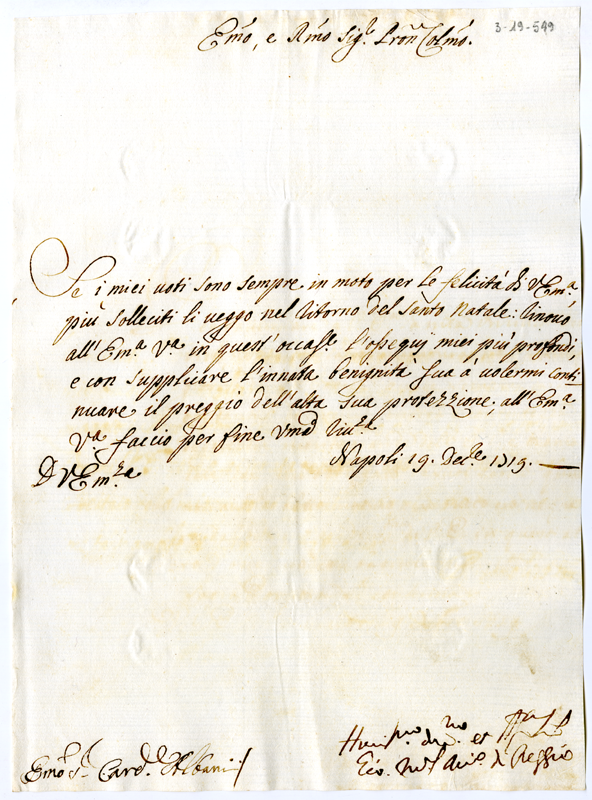 3-19-549
Emo, e Rmo Sig.r Pron Colmo.
Se i miei voti sono sempre in moto per le felicità di VEm.a
più solleciti li veggo nel ritorno del Santo Natale: rinovo
all'Em.a V.a in quest'occas.e l'ossequij miei più profondi,
e con supplicare l'innata benignità sua à volermi conti
nuare il preggio dell'alta sua protezzione; all'Em.a
V.a faccio per fine
Napoli 19. Dec.e 1719.
D VEm.za
Hum.mo et
di Reggio
Emo S.r Card.le Albani